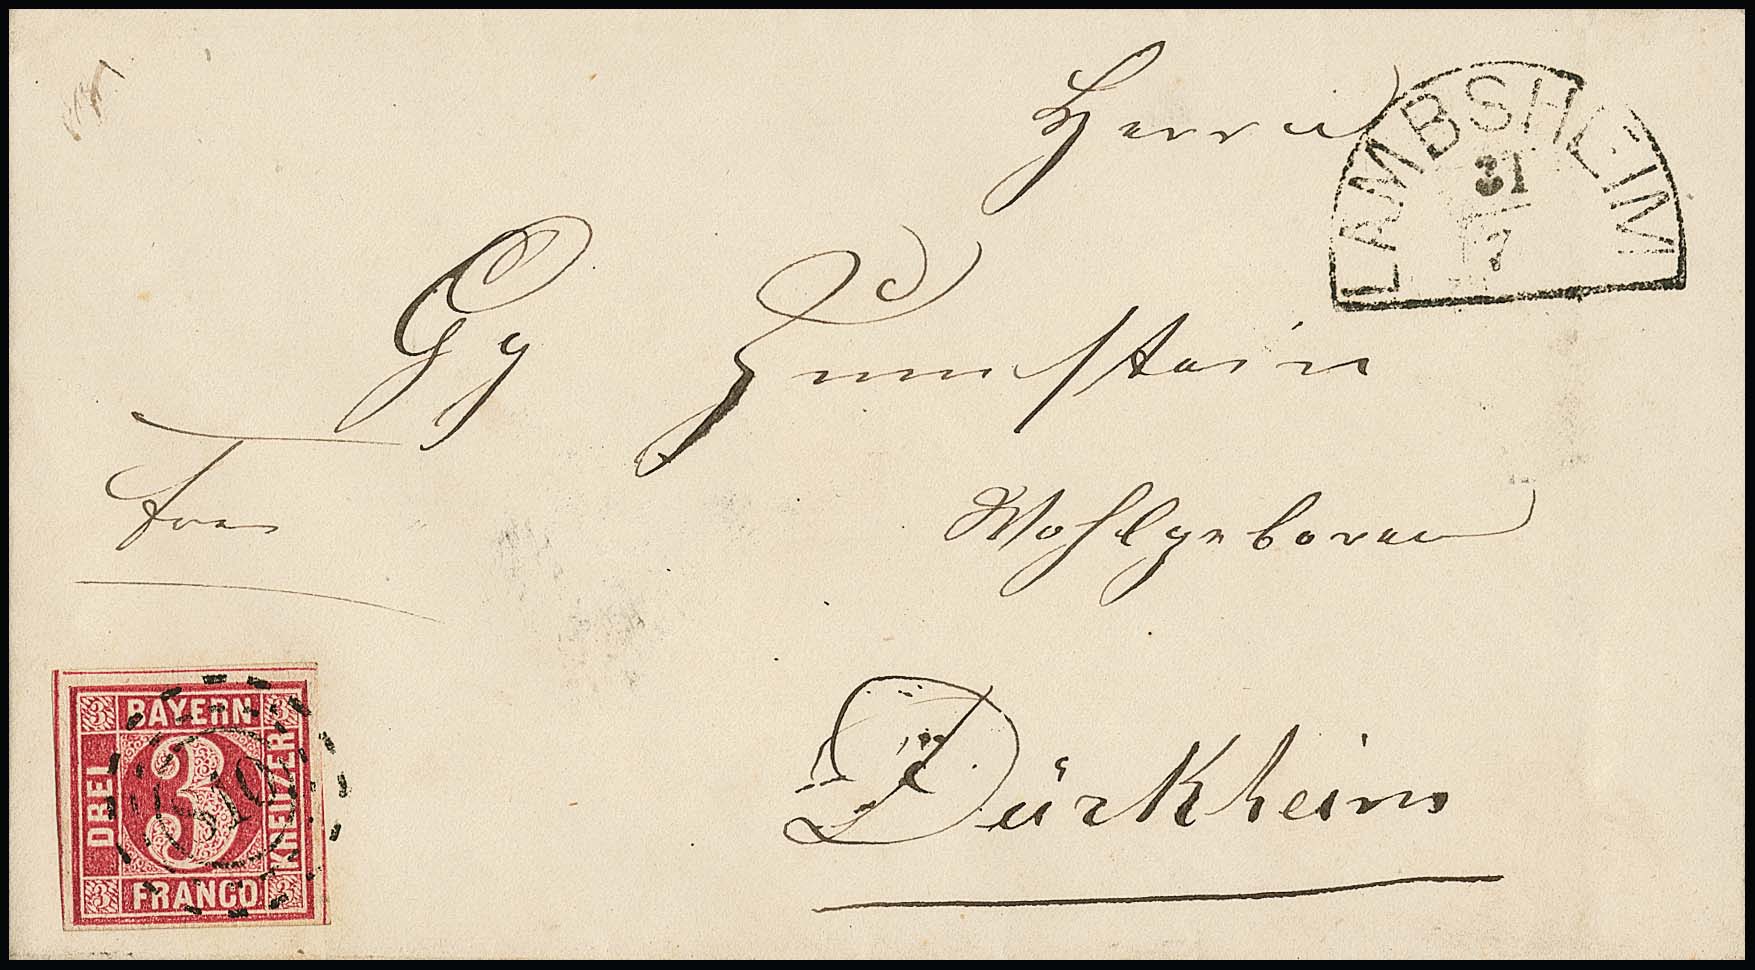 Herrn
LAMBSHEIM
31
7
Gg Zumstein
Wohlgeboren
Dürkheim
BAYERN
DREI
3
KREUZER
FRANCO
3
3
3
3